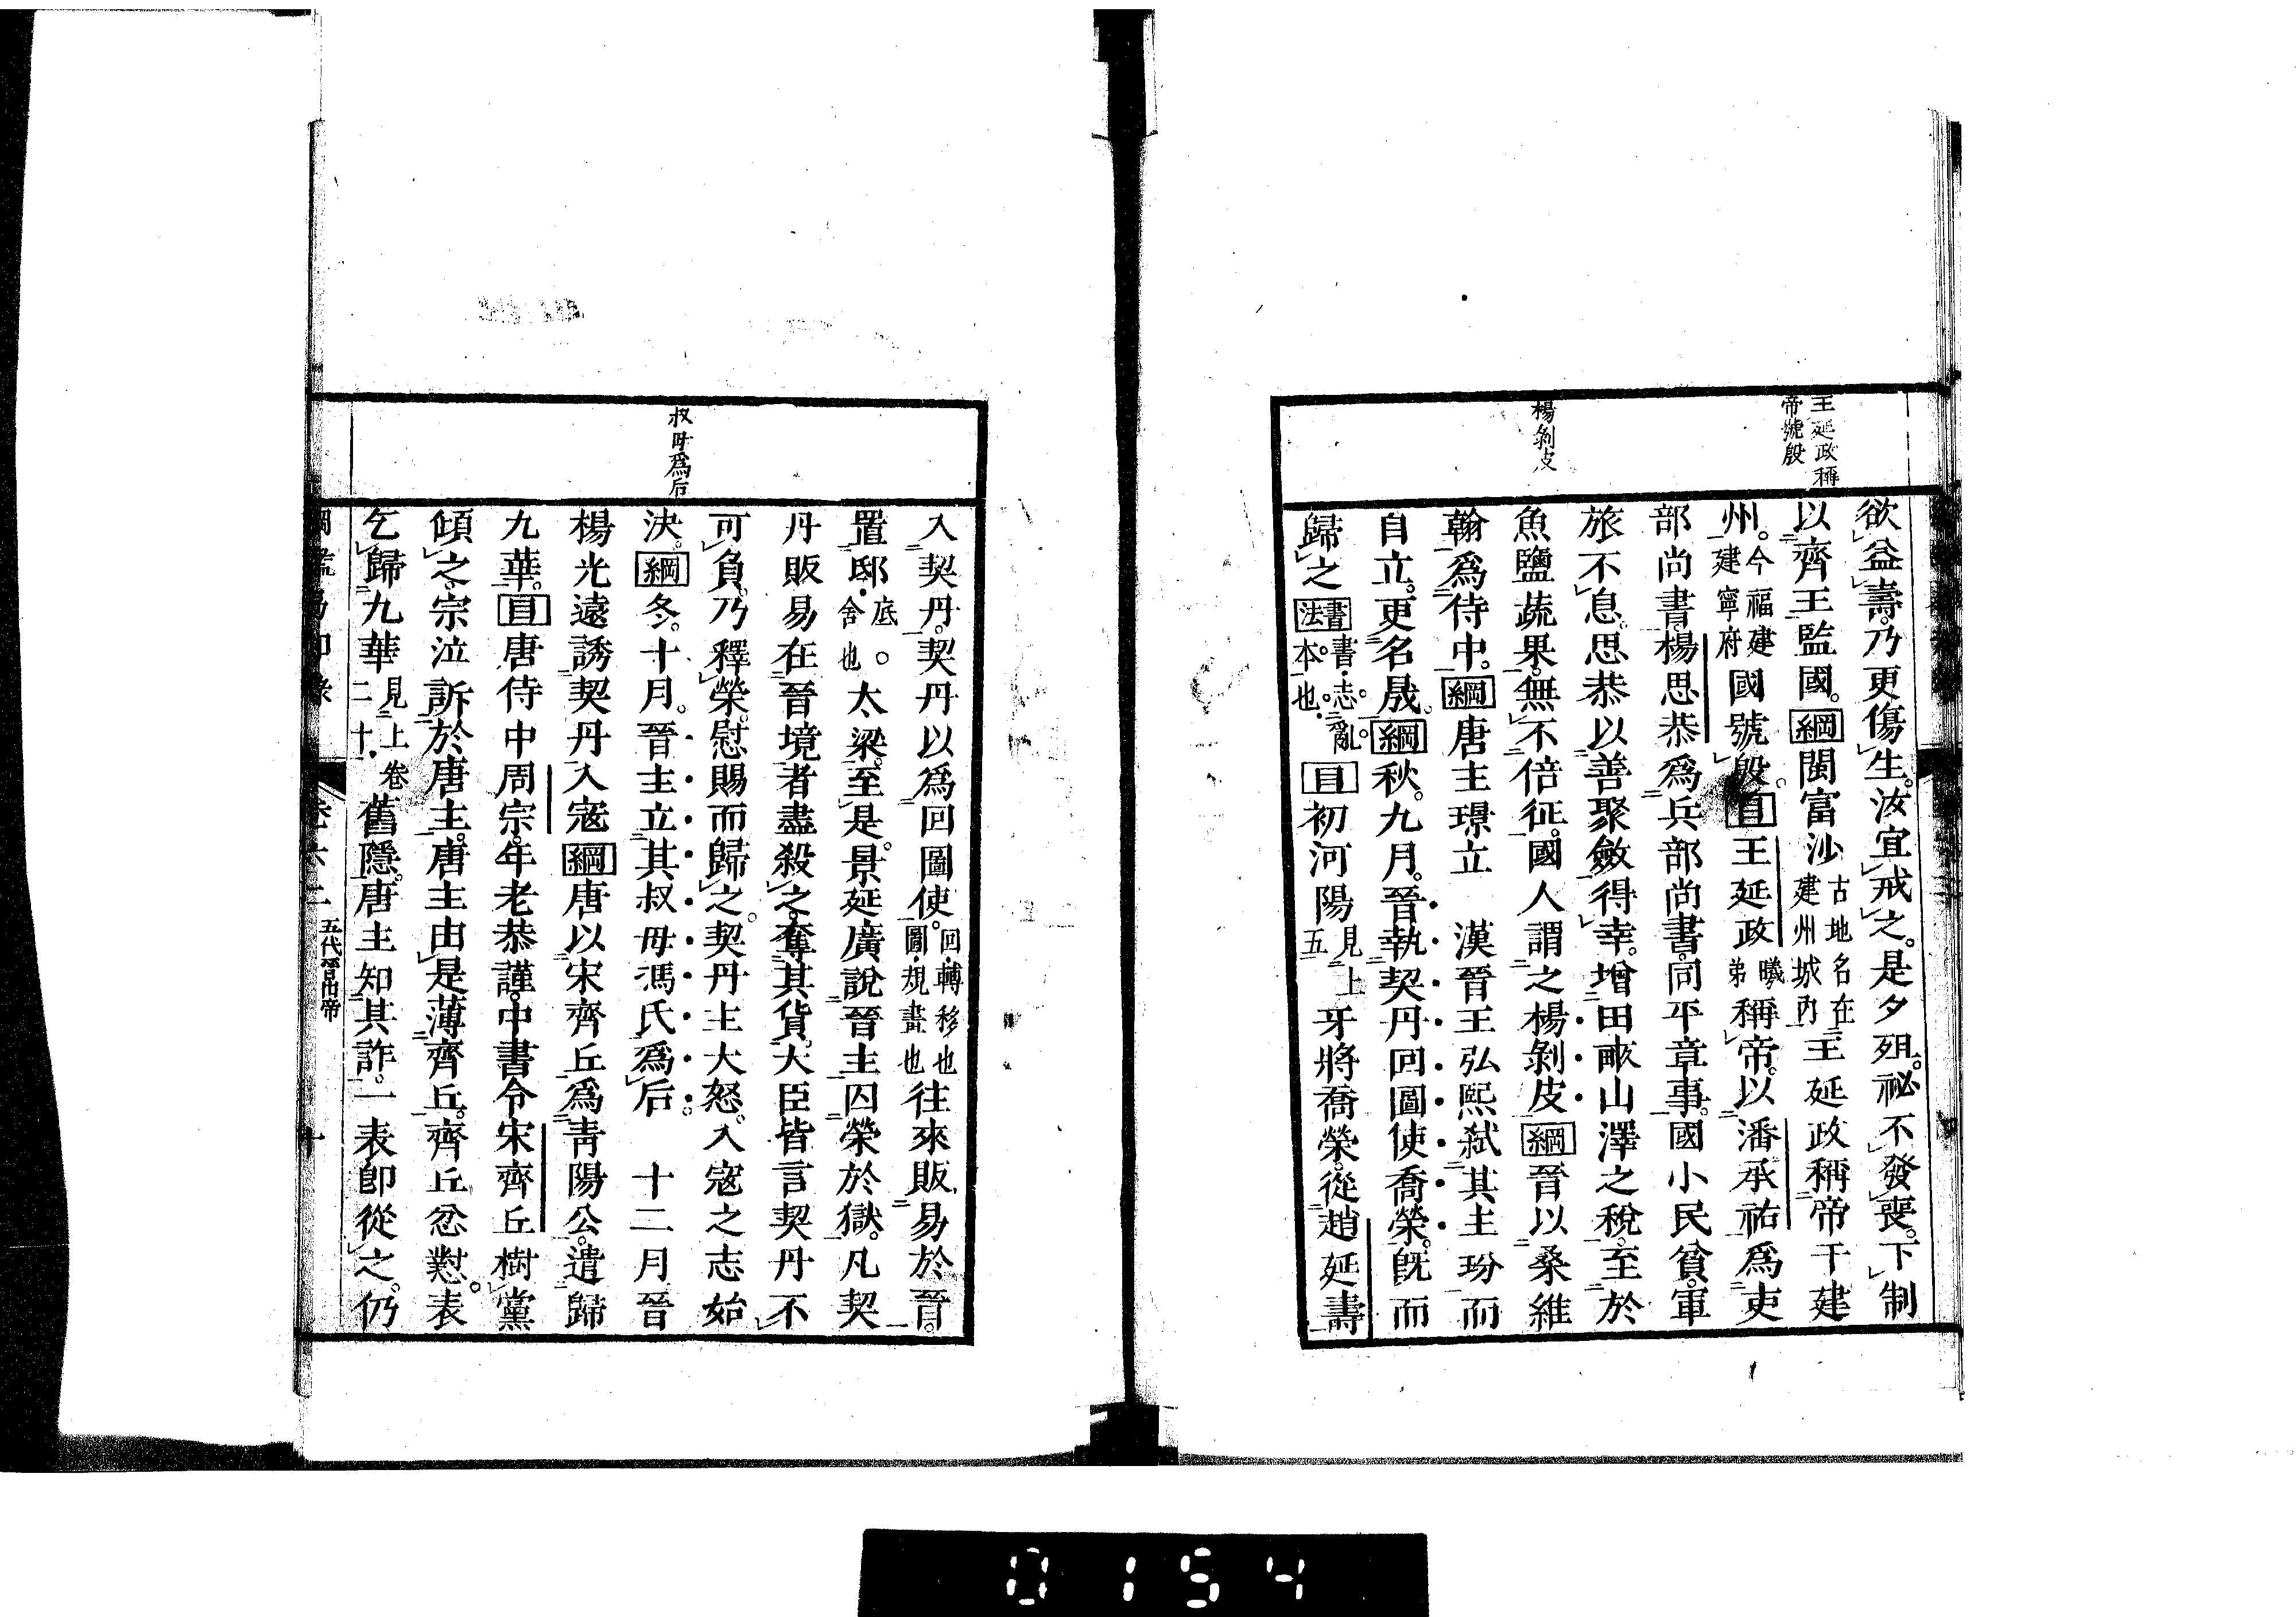 王延政稱
帝號殷
楊剝皮
欲益壽。乃更傷生。汝宜戒之。是夕殂。祕不發喪。下制
以齊王監國。綱閩富沙古地名在建州城內王延政稱帝于建
州。今福建建寧府國號殷。目王延政曦弟稱帝。以潘承祐爲吏
部尚書。楊思恭爲兵部尚書。同平章事。國小民貧。軍
旅不息。思恭以善聚斂得幸。增田畝山澤之稅。至於
魚鹽蔬果。無不倍征。國人謂之楊剝皮綱晉以桑維
翰爲侍中。綱唐主璟立　漢晉王弘熙弒其主玢而
自立。更名晟。綱秋。九月。晉執契丹回圖使喬榮。旣而
歸之書法書。志亂。本也。目初河陽見上五牙將喬榮。從趙延壽
叔母爲后
入契丹。契丹以爲回圖使。回。轉移也圖。規畫也往來販易於晉。
置邸。底。舍也。太梁。至是。景延廣說晉主囚榮於獄。凡契
丹販易在晉境者盡殺之。奪其貨。大臣皆言契丹不
可負。乃釋榮。慰賜而歸之。契丹主大怒。入寇之志始
決。綱冬。十月。晉主立其叔母馮氏爲后。　十二月晉
楊光遠誘契丹入寇綱唐以宋齊丘爲靑陽公。遣歸
九華。目唐侍中周宗。年老恭謹。中書令宋齊丘樹黨
傾之。宗泣訴於唐主。唐主由是薄齊丘。齊丘忿懟。表
乞歸九華見上卷二十舊隱。唐主知其詐。一表卽從之。仍
卷六二　五代晉出帝　十
0154